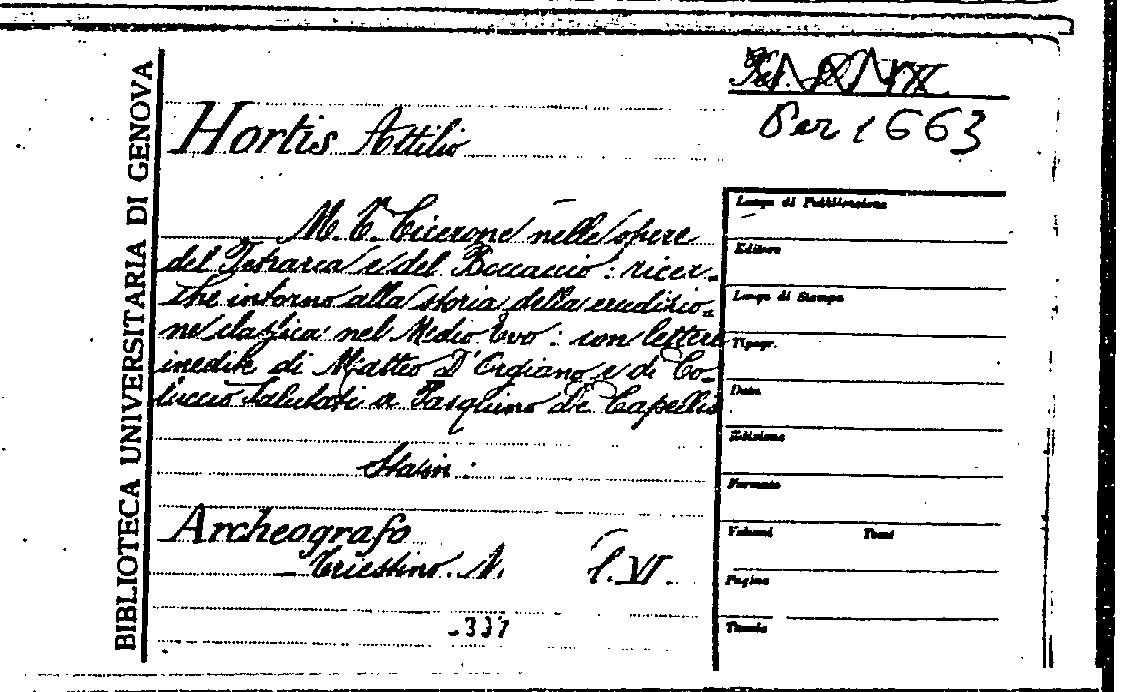 BIBLIOTECA UNIVERSITARIA DI GENOVA
Per 1663
Hortis Attilio
M. T. Cicerone nelle opere
del Petrarca e del Boccaccio: ricer-
che intorno alla storia della erudizio-
ne classica nel Medio Evo: con lettere
inedite di Matteo D'Orgiano e di Co-
luccio Salutati a Pasquino De Capellis
Sta in:
Archeografo
Triestino. N. S. VI.
-337
Luogo di Pubblicazione
Editore
Luogo di Stampa
Tipogr.
Data
Edizione
Formato
Volumi Tomi
Pagine
Tavole